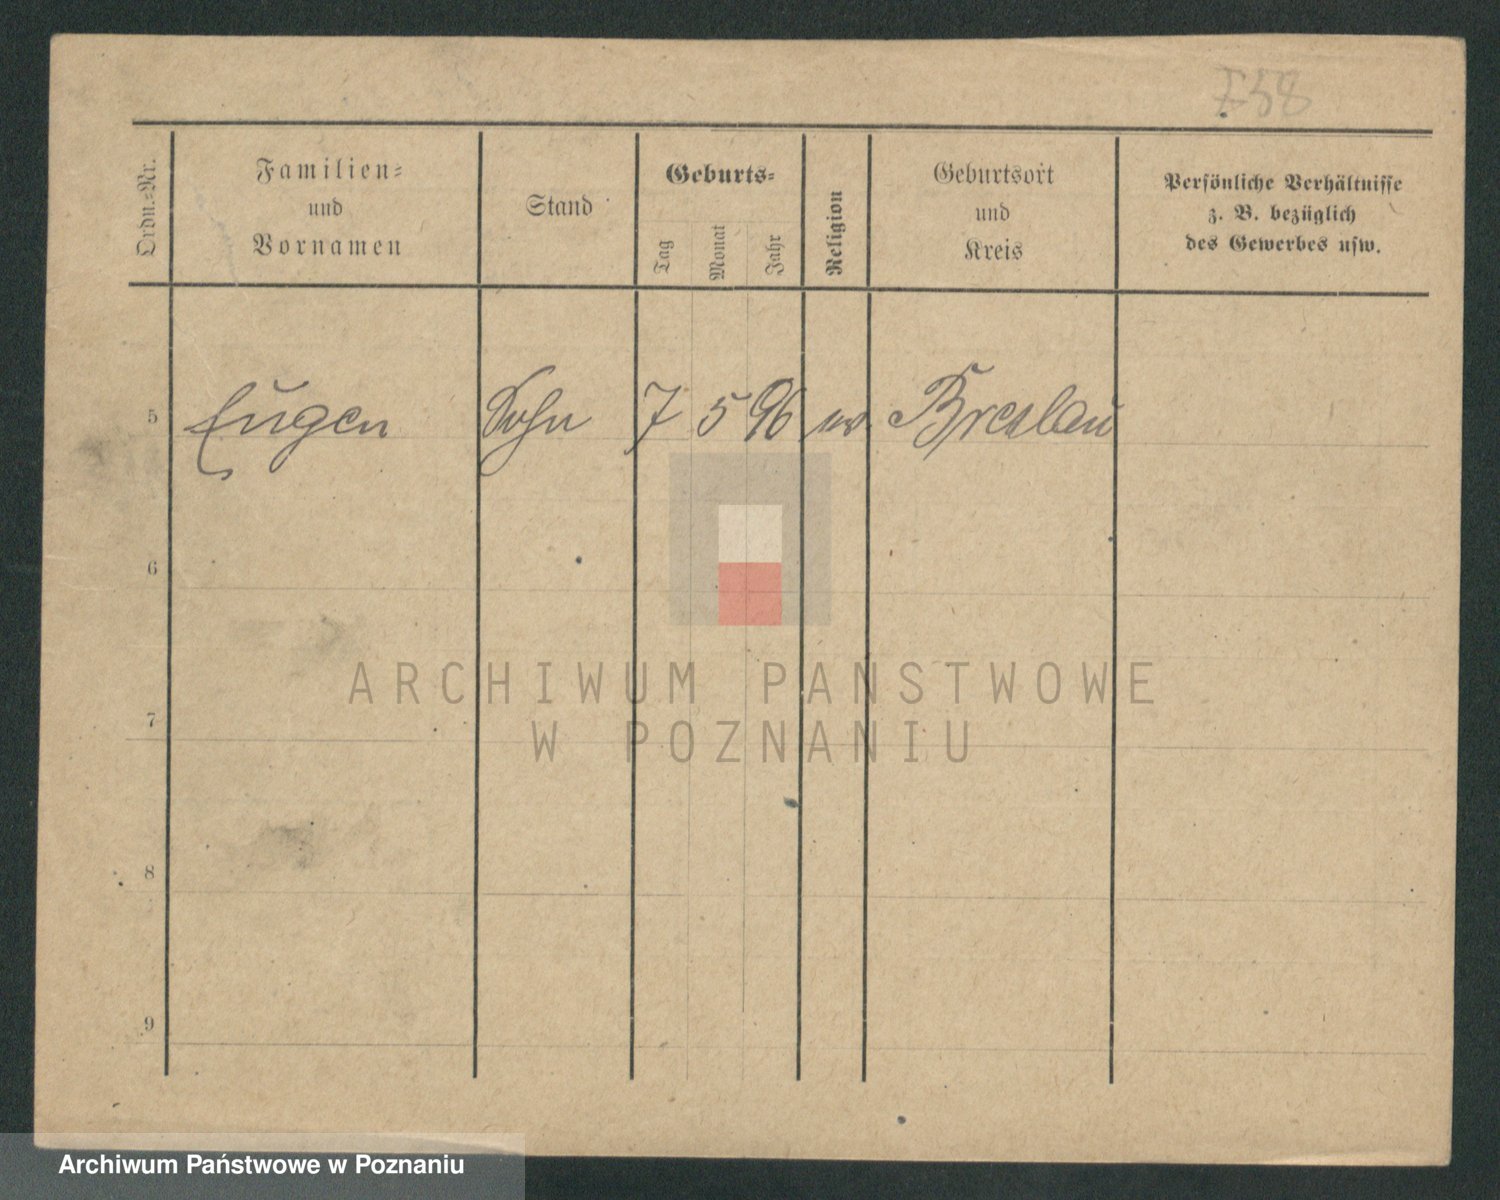 E58
Ordn.-Nr.
Familien-
und
Vornamen
Stand
Geburts-
Tag
Monat
Jahr
Religion
Geburtsort
und
Kreis
Persönliche Verhältnisse
z. B. bezüglich
des Gewerbes usw.
5 Eugen Sohn 7 5 96 ev. Breslau
6
7
8
9
ARCHIWUM PAŃSTWOWE
W POZNANIU
Archiwum Państwowe w Poznaniu